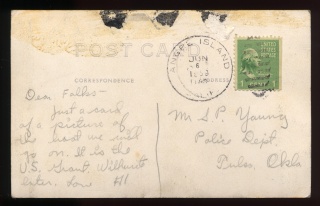 POST CARD
CORRESPONDENCE
ANGEL ISLAND
JUN
6
CALIF.
ADDRESS
UNITED STATES
Dear Folks-
Just a card
of a picture of
the boat we will
go on. It is the
U.S. Grant. Will write
later. Love Al
Mr S P Young
Police Dept.
Tulsa Okla